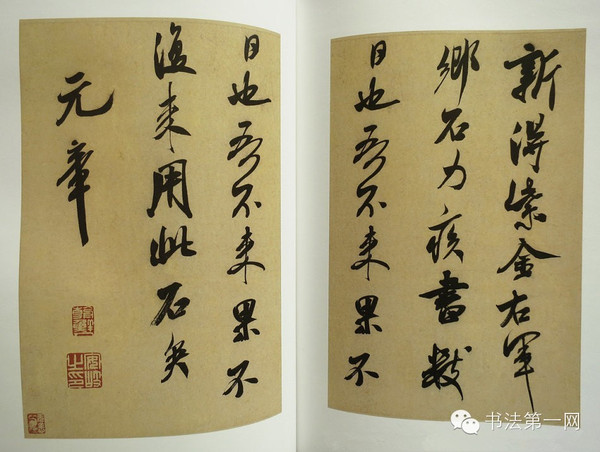 新得紫金右軍
鄉石力疾書數
日也吾不來果不
日也吾不來果不
復來用此石矣
元章
书法第一网